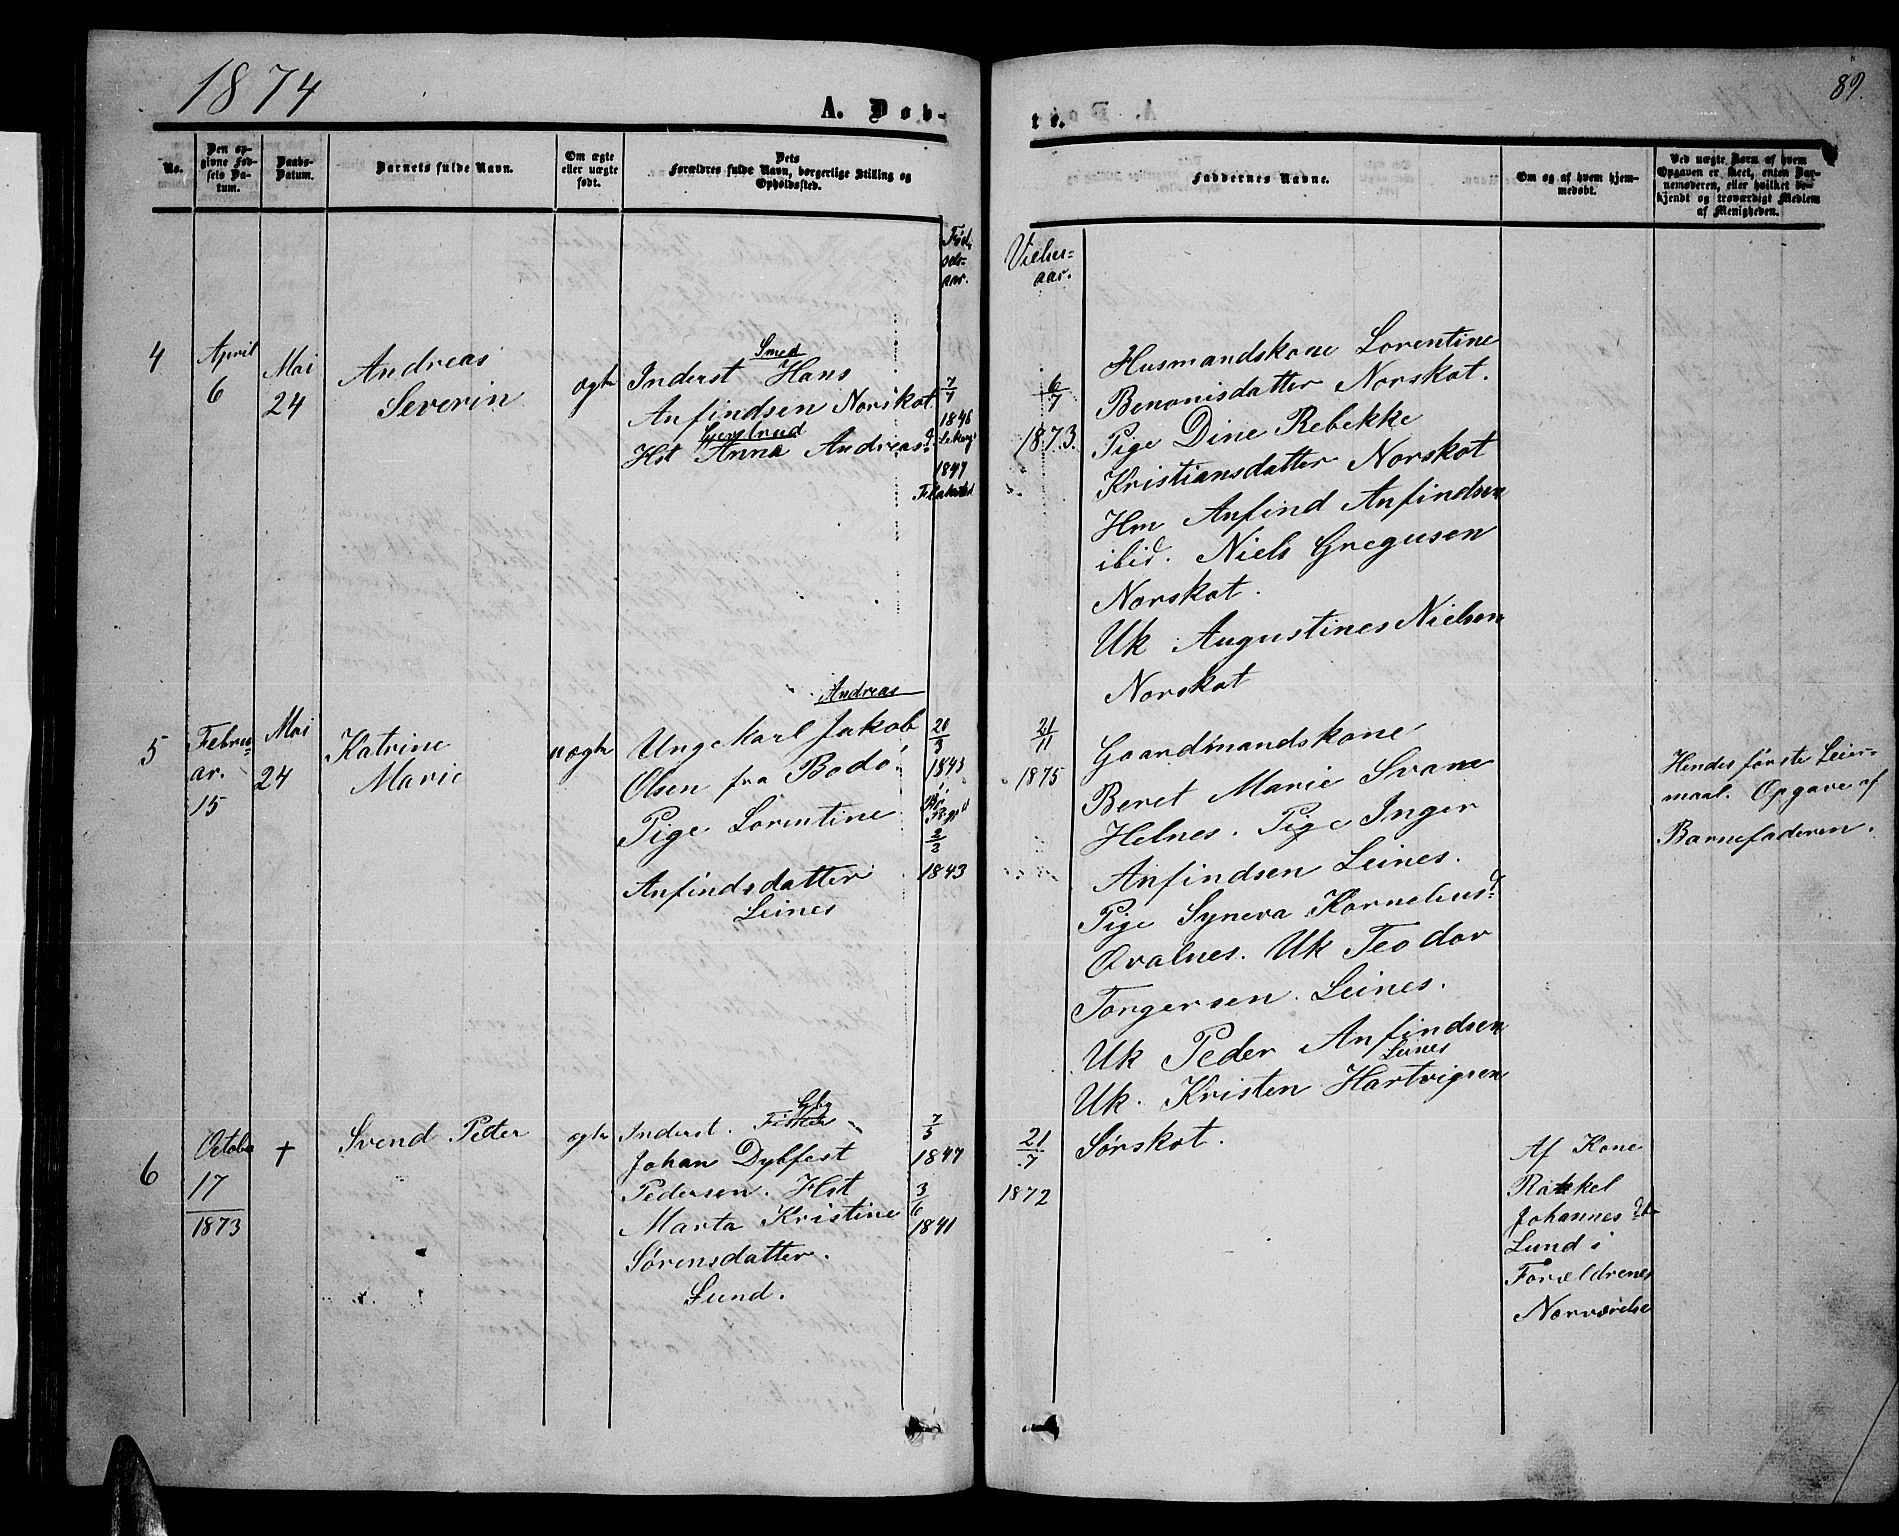 1874
89.
A. Døb-
te.
No.
Den op-
givne Fød-
sels Da-
tum.
Daabs-
Datum.
Barnets fulde Navn.
Om ægte
eller uægte
født.
Dets
Forældres fulde Navn, borgerlige Stilling og
Opholdssted.
Faddernes Navne.
Om og af hvem hjem-
medøbt.
Ved uægte Børn af hvem
Opgaven er skeet, enten Bar-
nemoderen, eller hvilket be-
kjendt og troværdigt Medlem
af Menigheden.
Fød-
sels-
aar.
Vielses-
aar.
4
April
6
Mai
24
Andreas
Severin
ægte
Smed
Inderst Hans
Anfindsen Norskot
Gjertrud
Hst Anna Andreasd.
7/7
1846
1847
6/7
1873.
Husmandskone Lorentine
Benonisdatter Norskot.
Pige Dine Rebekke
Kristiansdatter Norskot
Hm Anfind Anfindsen
ibid. Niels Gregusen
Norskot.
Uk Augustines Nielsen
Norskot
5
Febru-
ar.
15
Mai
24
Katrine
Marie
uægte
Andreas
Ungekarl Jakob
Olsen fra Bodø.
Pige Lorentine
Anfindsdatter
Leines
1843
2/2
1843
21/11
1875
Gaardmandskone
Beret Marie Svane
Helnes. Pige Inger
Anfindsen Leines.
Pige Syneva Korneliusd.
Øvalnes. Uk Teodor
Torgersen Leines.
Uk Peder Anfindsen
Leines
Uk. Kristen Hartvigsen
Sørskot.
Hendes første Leier-
maal. Opgave af
Barnefaderen.
6
October
17
1873
+
Svend Petter
ægte
Gby
Inderst. Fisker
Johan Dybfest
Pedersen. Hst
Marta Kristine
Sørensdatter.
Lund.
7/5
1847
3/6
1841
21/7
1872
Af Kone
Rakkel
Johannesdtr
Lund i
Forældrenes
Nærværelse